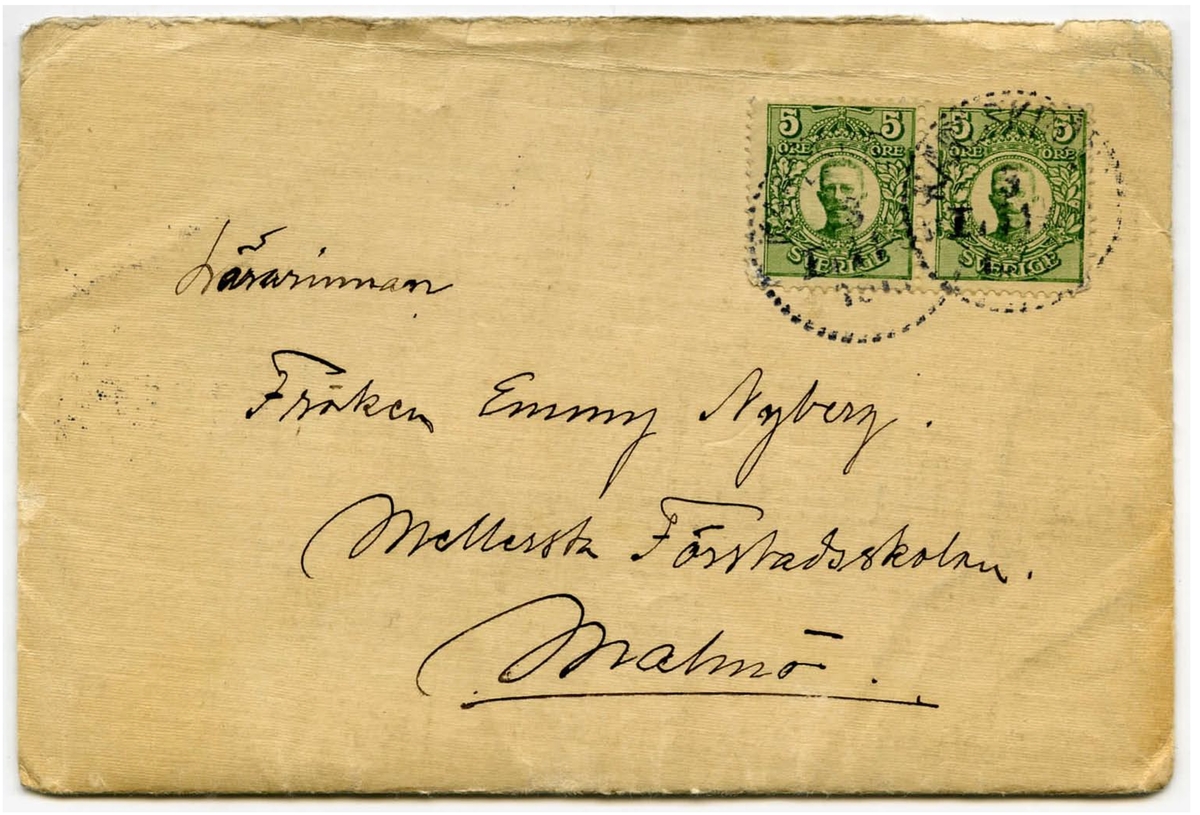 5 5 5 5
ÖRE ÖRE ÖRE ÖRE
SVERIGE SVERIGE
Lärarinnan
Fröken Emmy Nyberg.
Mellersta Förstadsskolan.
Malmö.